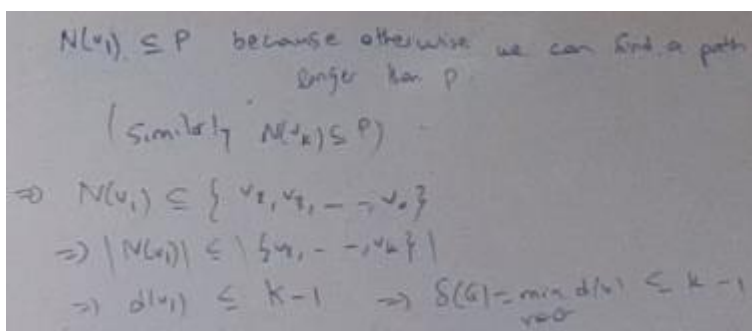 N(v₁) ⊆ P because otherwise we can find a path
longer than P.
(Similarly N(vₖ) ⊆ P)
⇒ N(v₁) ⊆ { v₂, v₃, ... , vₖ }
⇒ |N(v₁)| ≤ | { v₂, ... , vₖ } |
⇒ d(v₁) ≤ k-1 ⇒ δ(G) = min d(v) ≤ k-1
v∈G